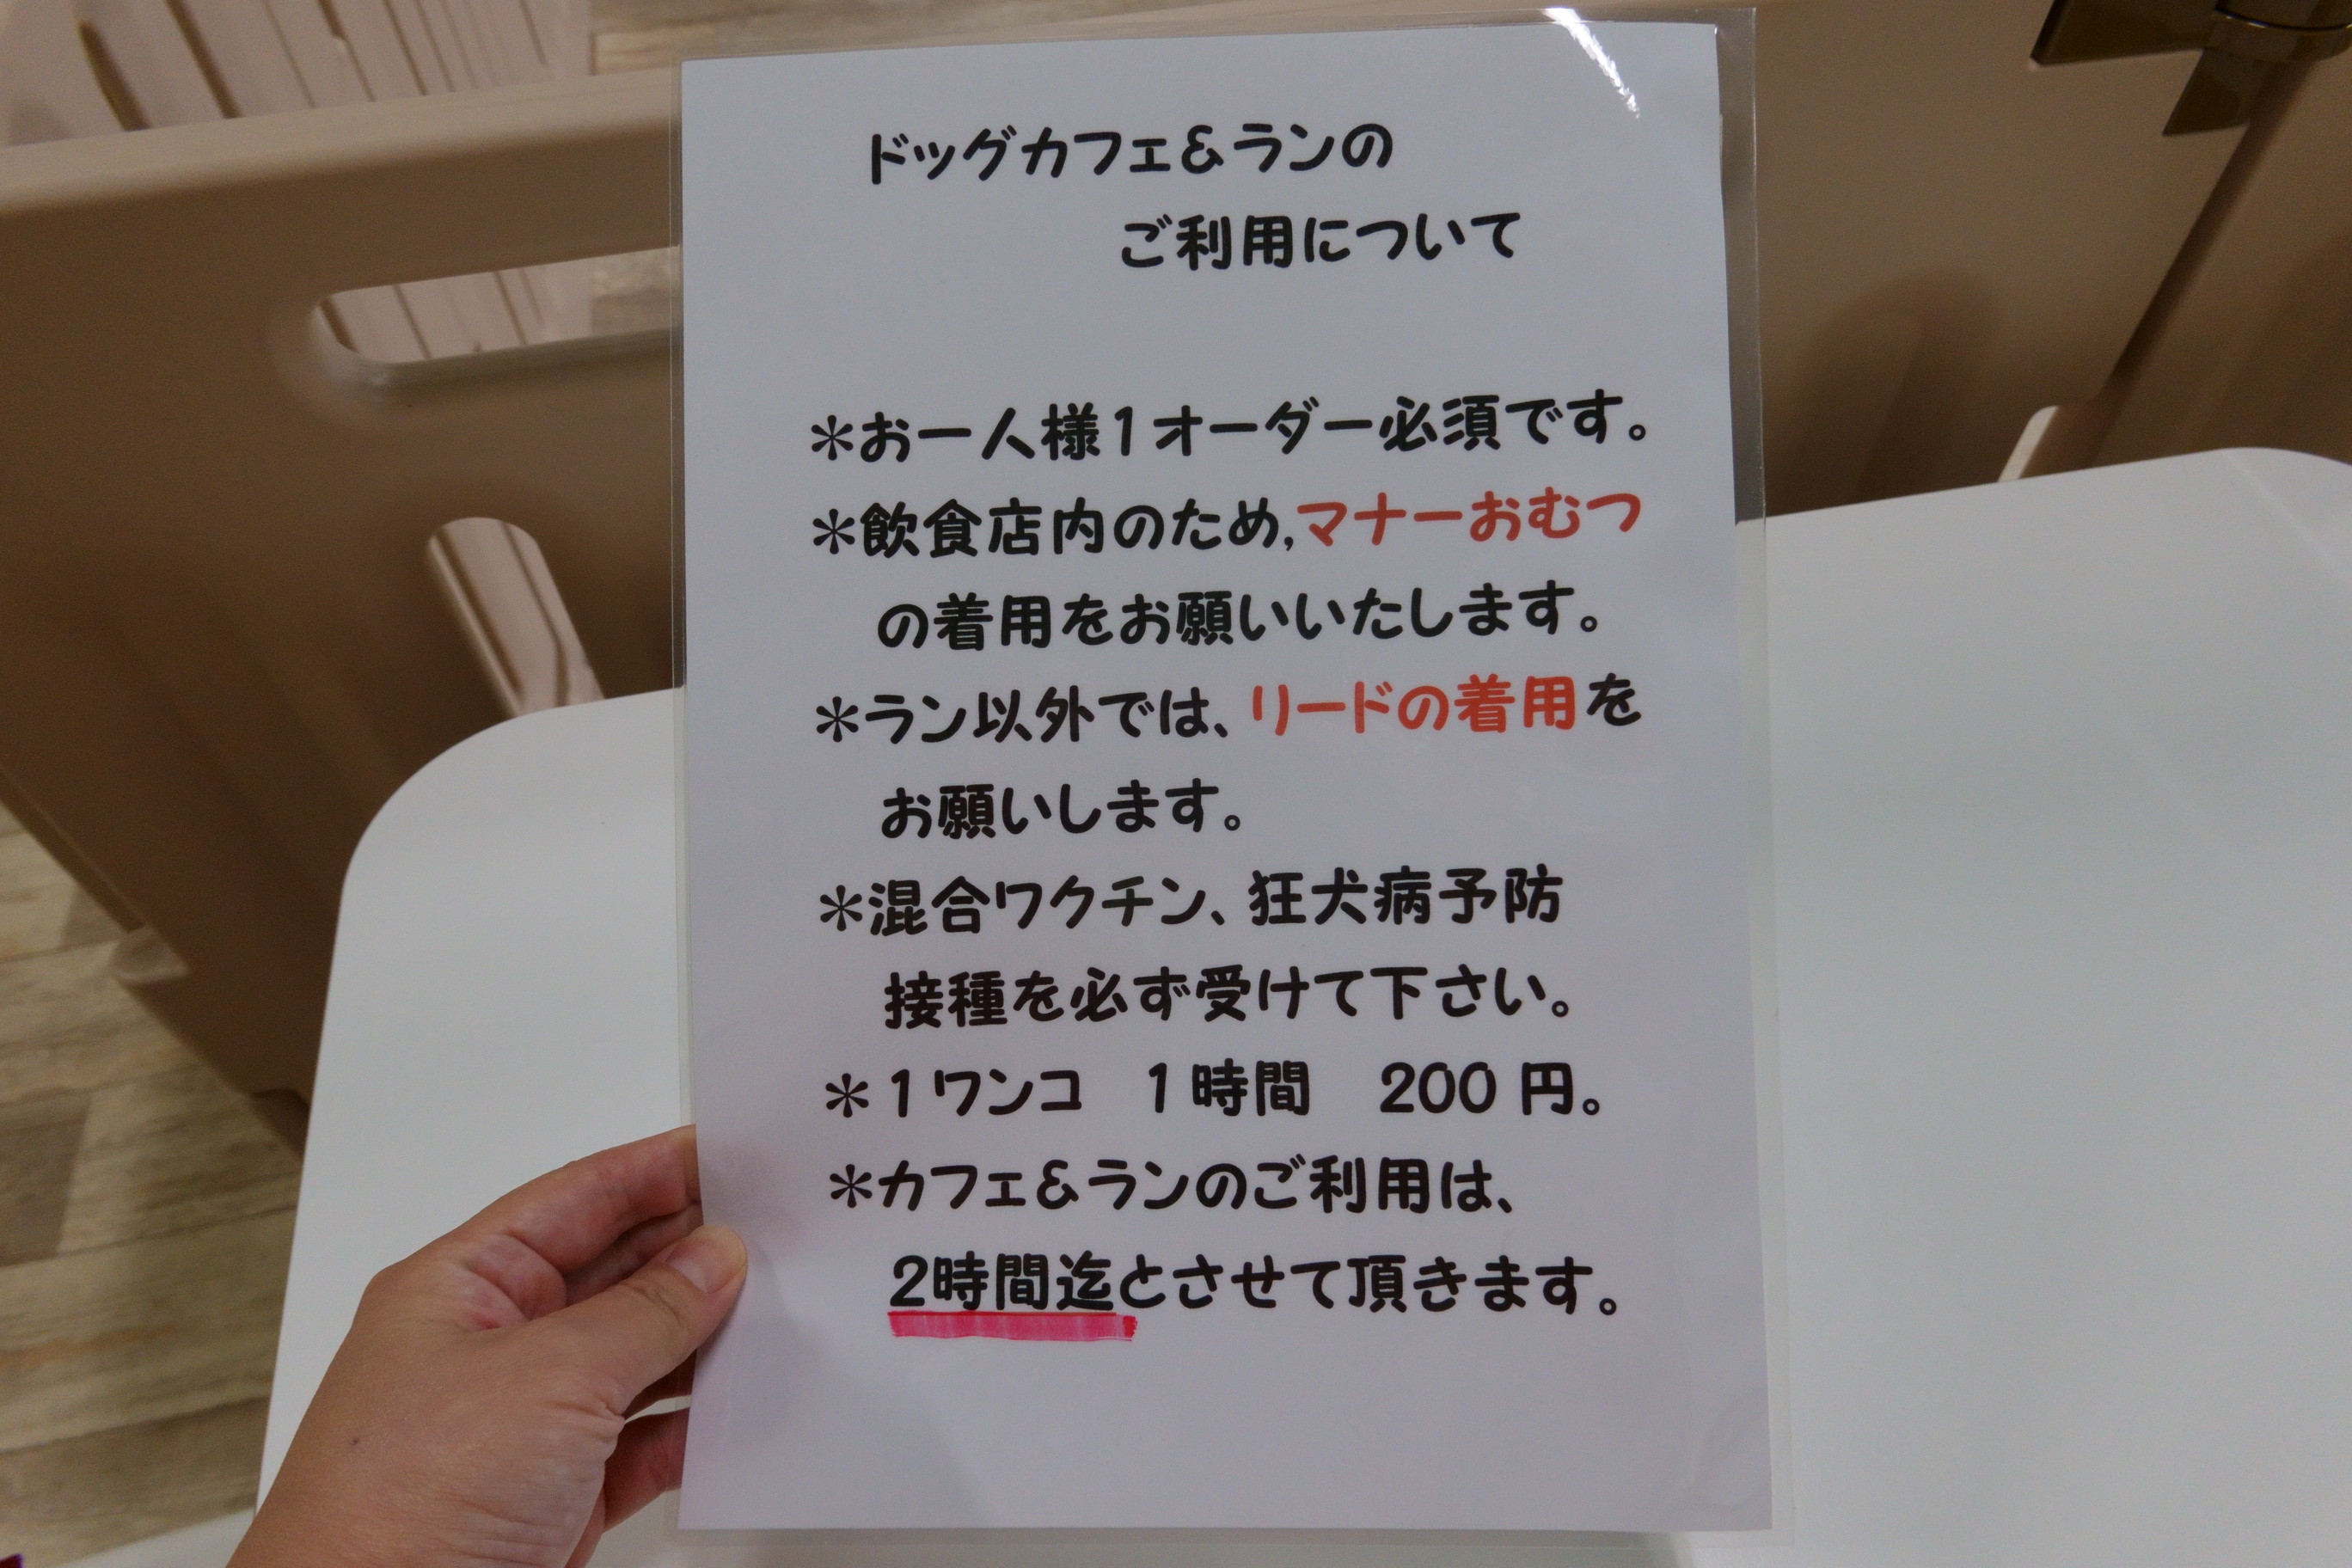 ドッグカフェ&ランの
ご利用について
＊お一人様1オーダー必須です。
＊飲食店内のため,マナーおむつ
の着用をお願いいたします。
＊ラン以外では、リードの着用を
お願いします。
＊混合ワクチン、狂犬病予防
接種を必ず受けて下さい。
＊1ワンコ　1時間　200円。
＊カフェ&ランのご利用は、
2時間迄とさせて頂きます。